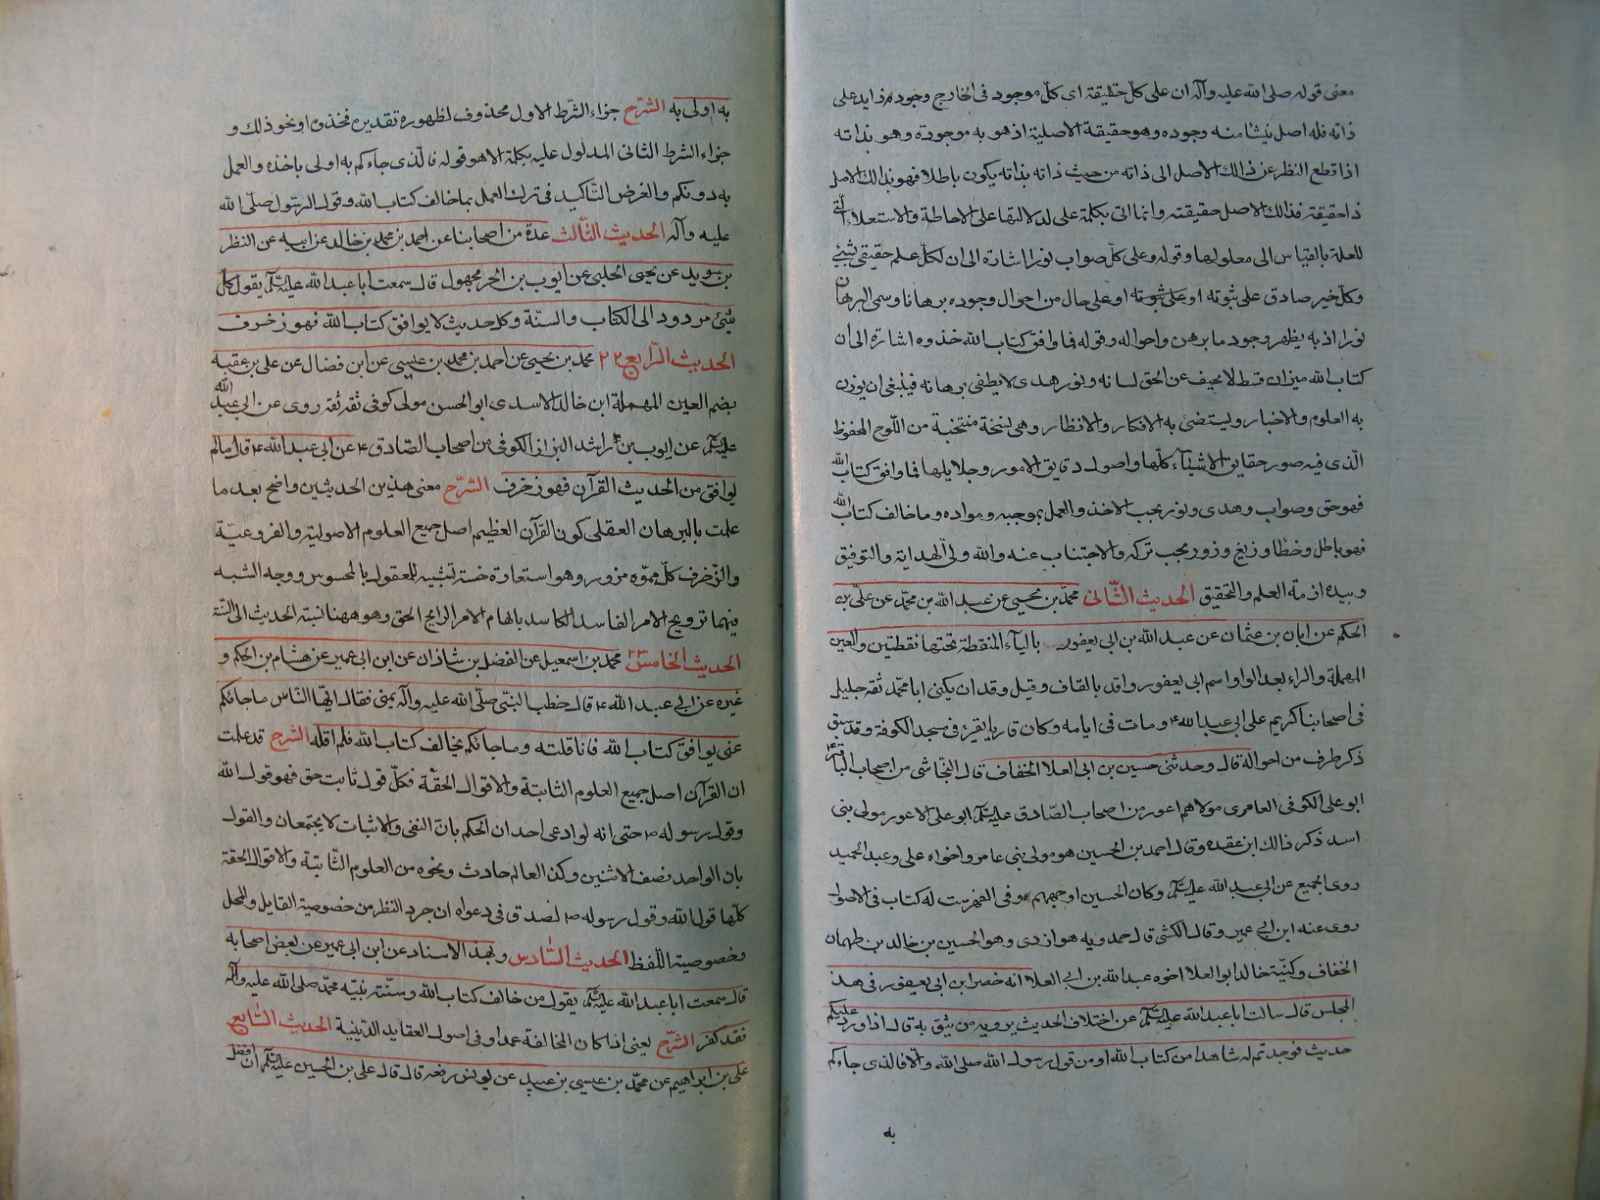 معنى قوله صلى الله عليه وآله ان على كل حقيقة اى كل موجود فى الخارج وجوده زايد على
ذاته فله اصل ينشا منه وجوده وهو حقيقة الاصلية اذ هو به موجودة وهو بذاته
اذا قطع النظر عن ذالك الاصل الى ذاته من حيث ذاته بذاته يكون باطلا فهو بذالك الاصل
ذا حقيقة فذالك الاصل حقيقته وانما اتى بكلمة على لدلالتها على الاحاطة والاستعلاء التى
للعلة بالقياس الى معلولها وقوله وعلى كل صواب نورا اشارة الى ان لكل علم حقيقى بشىء
وكل خبر صادق على ثبوته او على ثبوته او على حال من احوال وجوده برهانا وسمى البرهان
نورا اذ به يظهر وجود ما برهن واحواله وقوله فما وافق كتاب الله خذوه اشارة الى ان
كتاب الله ميزان قسط لا يحيف عن الحق لسانه ونور هدى لا يطفى برهانه فينبغى ان يوزن
به العلوم والاخبار وليستضئ به الافكار والانظار وهى نسخة منتخبة من اللوح المحفوظ
الذى فيه صور حقايق الاشياء كلها واصول دقايق الامور وجلايلها فما وافق كتاب الله
فهو حق وصواب وهدى ونور يجب الاخذ والعمل بموجبه ومواده وما خالف كتاب الله
فهو باطل وخطا وزيغ وزور يجب تركه والاجتناب عنه والله ولى الهداية والتوفيق
وبيده ازمة العلم والتحقيق الحديث الثانى محمد بن يحيى عن عبد الله بن محمد عن على بن
الحكم عن ابان بن عثمان عن عبد الله بن ابى يعفور بالياء المنقطة تحتها نقطتين والعين
المهملة والراء بعد الواو اسم ابى يعفور واقد بالقاف وقيل وقدان يكنى ابا محمد ثقة جليل
فى اصحابنا كريم على ابى عبد الله ع ومات فى ايامه وكان قاريا يقرئ فى مسجد الكوفة وقد سبق
ذكر طرف من احواله قال وحدثنى حسين بن ابى العلا الخفاف قال النجاشى من اصحاب الباقر ع
ابو على الكوفى العامرى مولاهم اعور من اصحاب الصادق عليه السلام ابو على الاعور مولى بنى
اسد ذكر ذالك ابن عقده وقال احمد بن الحسين هو مولى بنى عامر واخواه على وعبد الحميد
روى الجميع عن ابى عبد الله عليه السلام وكان الحسين اوجههم وفى الفهرست له كتاب فى الاصول
روى عنه ابن ابى عمير وقال الكشى قال حمدويه هو ازدى وهو الحسين بن خالد بن طهمان
الخفاف وكنية خالد ابو العلا اخوه عبد الله بن ابى العلا انه حضر ابن ابى يعفور فى هذا
المجلس قال سالت ابا عبد الله عليه السلام عن اختلاف الحديث يرويه من نثق به قال اذا ورد عليكم
حديث فوجدتم له شاهدا من كتاب الله او من قول رسول الله صلى الله والا فالذى جاءكم
به
به اولى به الشرح جزاء الشرط الاول محذوف لظهوره تقديره فخذوه او نحو ذلك و
جزاء الشرط الثانى المدلول عليه بكلمة الا هو قوله فالذى جاءكم به اولى باخذه والعمل
به دونكم والغرض التاكيد فى ترك العمل بما خالف كتاب الله وقول الرسول صلى الله
عليه وآله الحديث الثالث عدة من اصحابنا عن احمد بن محمد بن خالد عن ابيه عن النظر
بن سويد عن يحيى الحلبى عن ايوب بن الحر مجهول قال سمعت ابا عبد الله عليه السلام يقول كل
شئ مردود الى الكتاب والسنة وكل حديث لا يوافق كتاب الله فهو زخرف
الحديث الرابع ٢٢ محمد بن يحيى عن احمد بن محمد بن عيسى عن ابن فضال عن على بن عقبه
بضم العين المهملة ابن خالد الاسدى ابو الحسن مولى كوفى ثقة ثقة روى عن ابى عبد الله
عليه السلام عن ايوب بن راشد البزاز الكوفى من اصحاب الصادق ع عن ابى عبد الله ع قال ما لم
يوافق من الحديث القرآن فهو زخرف الشرح معنى هذين الحديثين واضح بعد ما
علمت بالبرهان العقلى كون القرآن العظيم اصل جميع العلوم الاصولية والفروعية
والزخرف كل مموه مزور وهو استعارة تشبيه للمعقول بالمحسوس ووجه الشبه
فيهما ترويج الامر الفاسد الكاسد بايهام الامر الرايج الحق وهو ههنا نسبة الحديث الى السنة
الحديث الخامس ٢٣ محمد بن اسمعيل عن الفضل بن شاذان عن ابن ابى عمير عن هشام بن الحكم و
غيره عن ابى عبد الله ع قال خطب النبى صلى الله عليه وآله بمنى فقال ايها الناس ما جائكم
عنى يوافق كتاب الله فانا قلته وما جائكم يخالف كتاب الله فلم اقله الشرح قد علمت
ان القرآن اصل جميع العلوم الثابتة والاقوال الحقة فكل قول ثابت حق فهو قول الله
وقول رسوله ص حتى انه لو ادعى احد ان الحكم بان النفى والاثبات لا يجتمعان والقول
بان الواحد نصف الاثنين وكذا العالم حادث ونحوه من العلوم الثابتة والاقوال الحقة
كلها قول الله وقول رسوله ص لصدق فى دعواه ان جرد النظر من خصوصية القايل والمحل
وخصوصية اللفظ الحديث السادس وبهذا الاسناد عن ابن ابى عمير عن بعض اصحابه
قال سمعت ابا عبد الله عليه السلام يقول من خالف كتاب الله وسنة نبيه محمد صلى الله عليه وآله
فقد كفر الشرح يعنى اذا كان المخالفة عمدا وفى اصول العقايد الدينية الحديث السابع
على بن ابراهيم عن محمد بن عيسى بن عبيد عن يونس رفعه قال قال على بن الحسين عليه السلام ان افضل